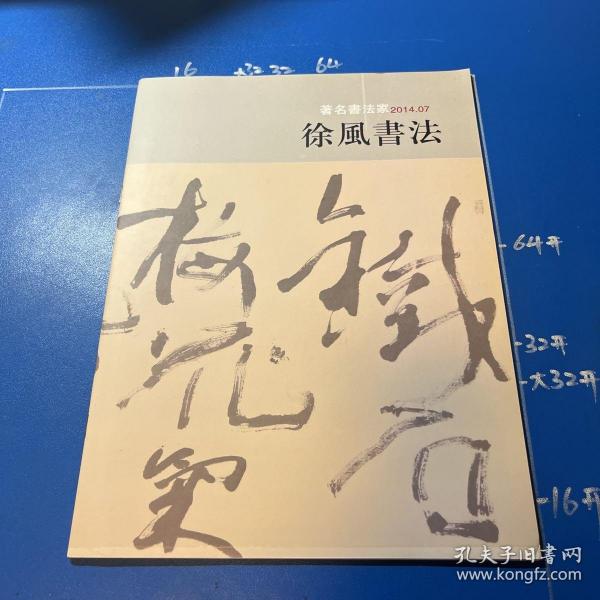 16 大32 32 64
著名書法家2014.07
徐風書法
鐵石
梅花氣
-64开
-32开
-大32开
-16开
孔夫子旧书网
www.kongfz.com